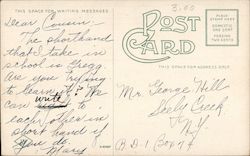 THIS SPACE FOR WRITING MESSAGES
Dear Cousin:-
The shorthand
that I take in
school is Gregg.
Are you trying
to learn it? We
can write to
each other in
short hand if
you do.
Mary
3.00
POST CARD
PLACE POSTAGE STAMP HERE
DOMESTIC ONE CENT
FOREIGN TWO CENTS
THIS SPACE FOR ADDRESS ONLY
Mr. George Hill
Seely Creek
N.Y.
R.D.1 Box 74